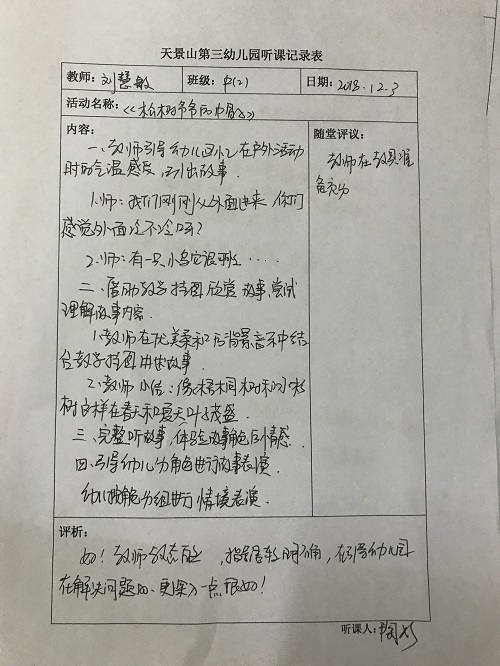 天景山第三幼儿园听课记录表
教师：刘慧敏 班级：中(2) 日期：2018.12.3
活动名称：《松树爷爷的
内容：
随堂评议：
一、教师引导幼儿回忆在户外活动
时的气温感受，引出故事．
1.师：我们刚刚从外面进来，你们
感觉外面冷不冷呀？
2.师：有一只小鸟它
二、借助教学挂图欣赏故事，尝试
理解故事内容．
1.教师在优美柔和的背景音乐中结
合教学挂图讲述故事．
2.教师小结：像梧桐树和小
树这样在春天和夏天叶子茂盛．
三、完整听故事，体验故事角色的情感．
四、引导幼儿分角色进行故事表演．
幼儿分组进行情境表演．
教师在教具准
备充分
评析：
教师教态自然，指导语较明确，在引导幼儿
在解决问题 更深入一点很好！
听课人：陶